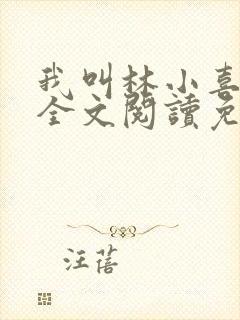 我叫林小喜
全文閱讀免
汪蓓